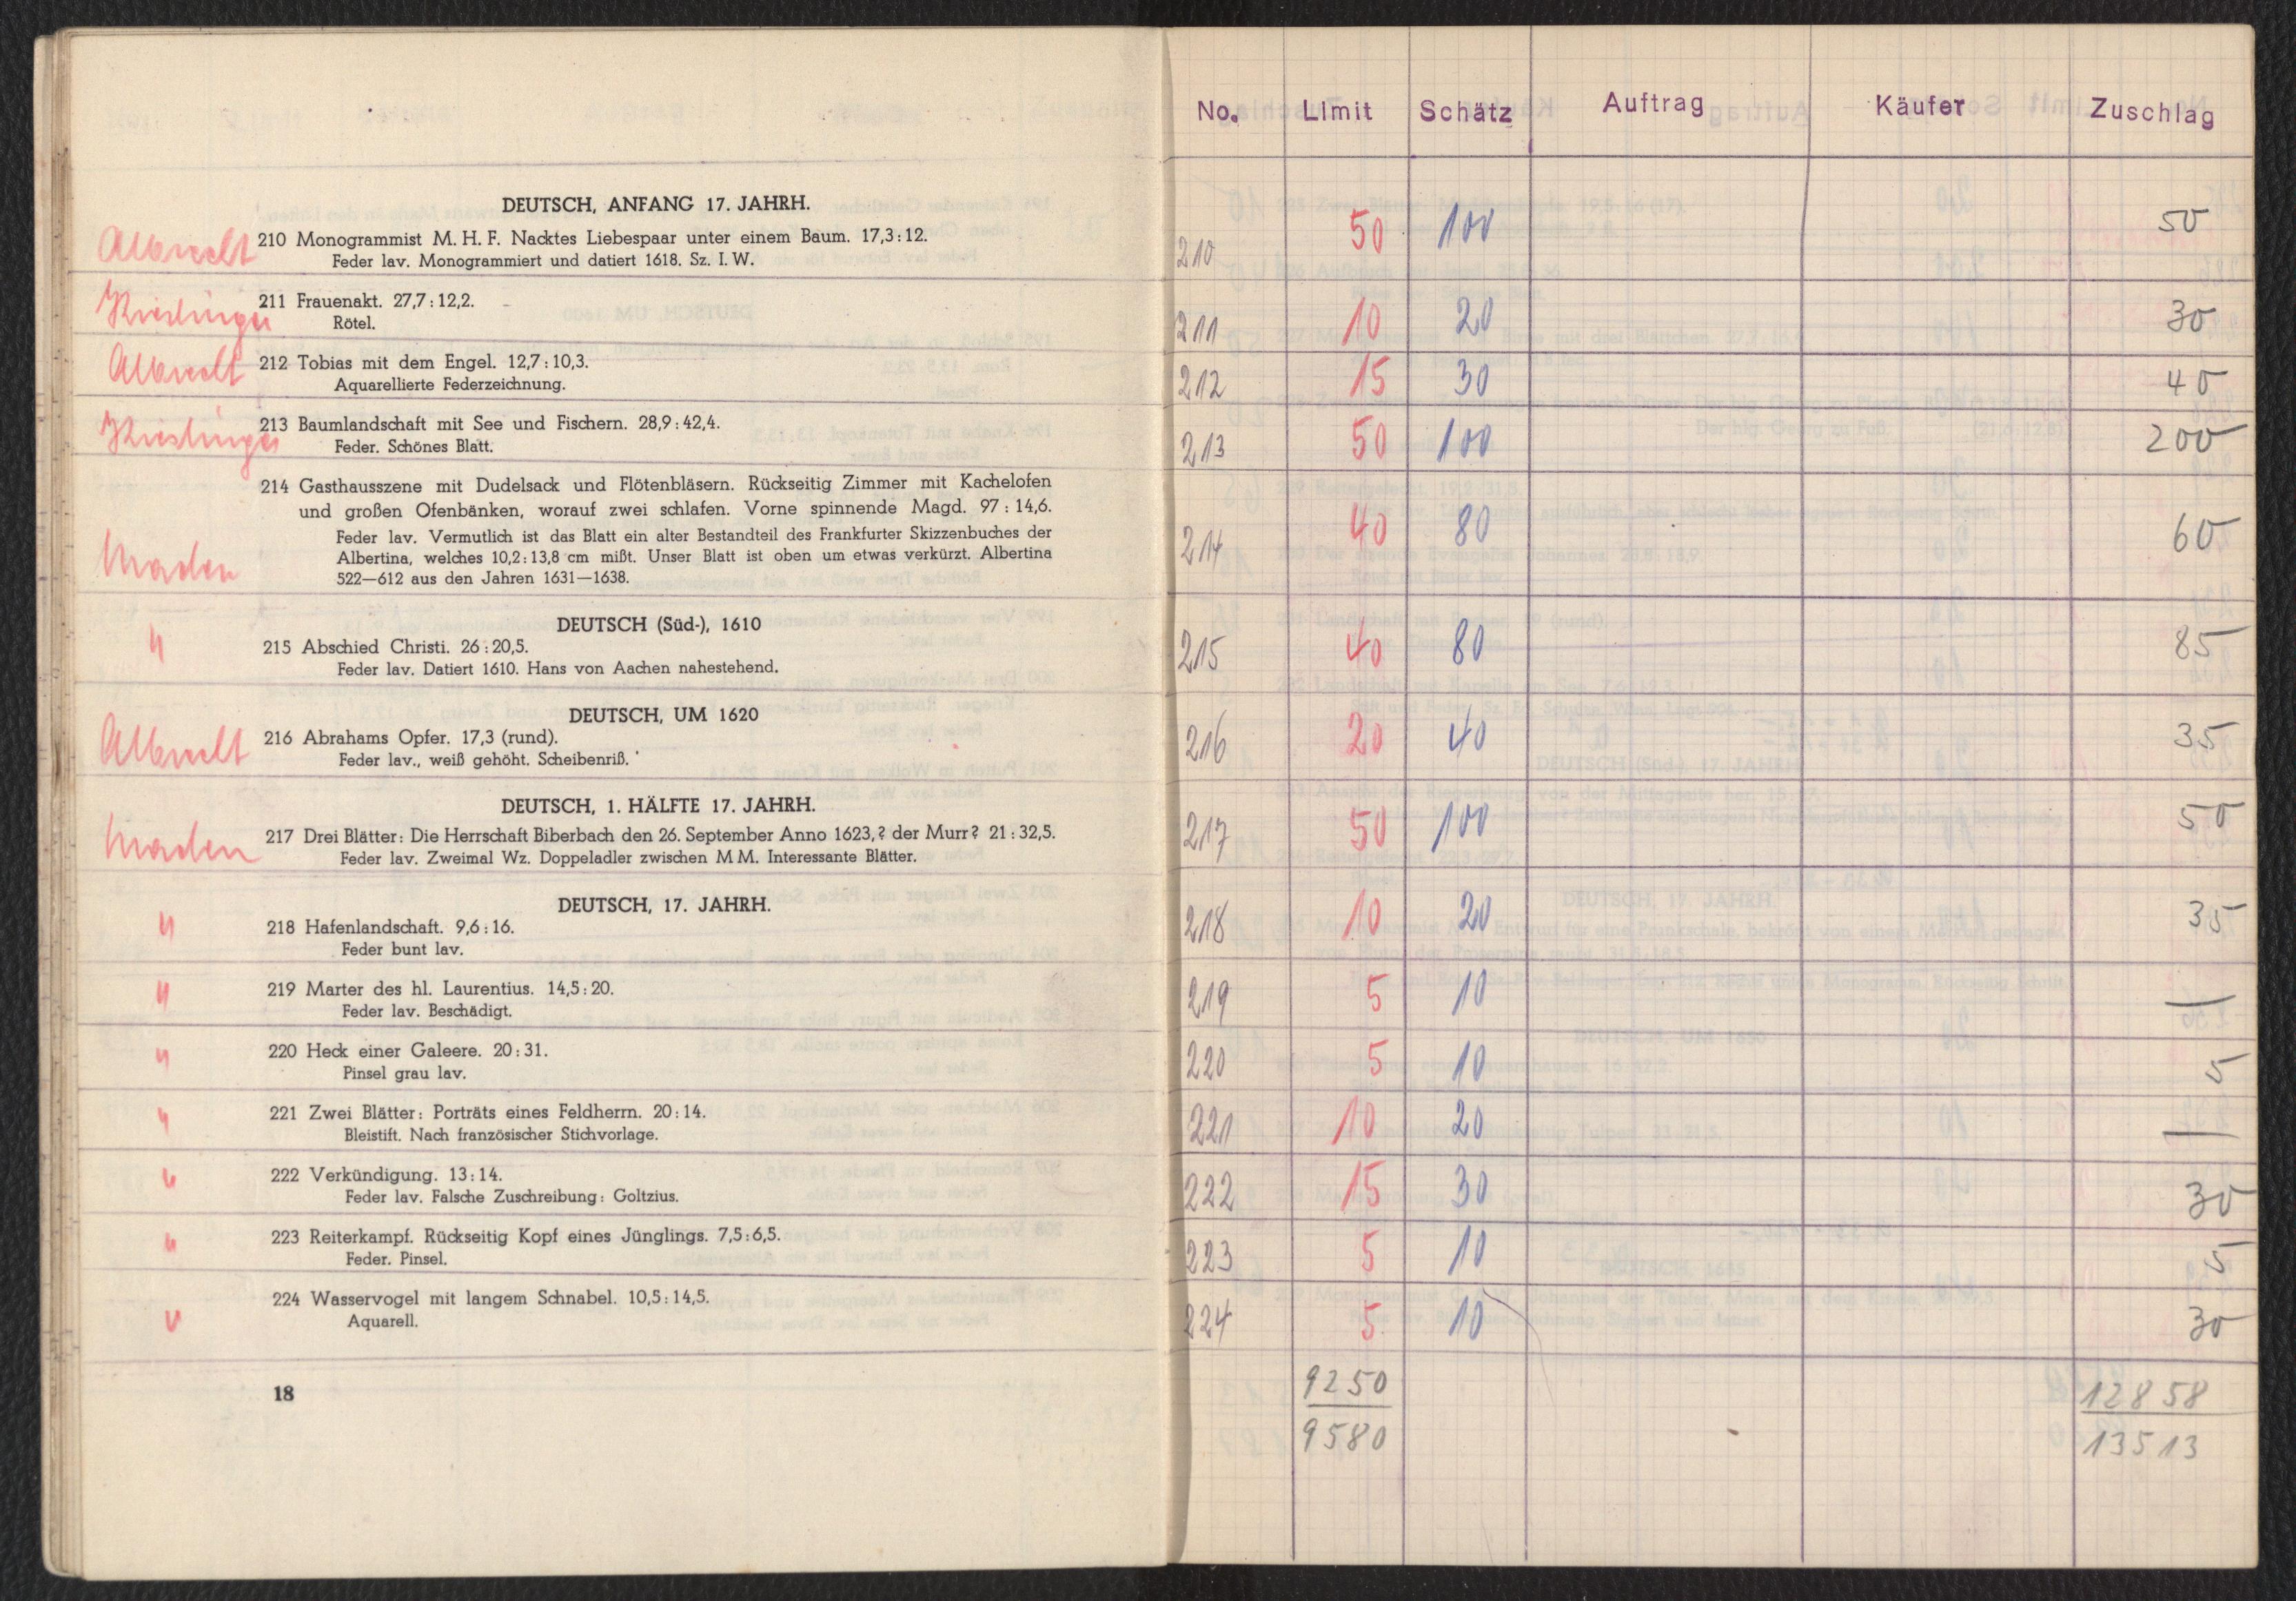 DEUTSCH, ANFANG 17. JAHRH.
Albrecht 210 Monogrammist M. H. F. Nacktes Liebespaar unter einem Baum. 17,3 : 12.
Feder lav. Monogrammiert und datiert 1618. Sz. I. W.
Kieslinger 211 Frauenakt. 27,7 : 12,2.
Rötel.
Albrecht 212 Tobias mit dem Engel. 12,7 : 10,3.
Aquarellierte Federzeichnung.
Kieslinger 213 Baumlandschaft mit See und Fischern. 28,9 : 42,4.
Feder. Schönes Blatt.
214 Gasthausszene mit Dudelsack und Flötenbläsern. Rückseitig Zimmer mit Kachelofen
und großen Ofenbänken, worauf zwei schlafen. Vorne spinnende Magd. 97 : 14,6.
Feder lav. Vermutlich ist das Blatt ein alter Bestandteil des Frankfurter Skizzenbuches der
Albertina, welches 10,2 : 13,8 cm mißt. Unser Blatt ist oben um etwas verkürzt. Albertina
522—612 aus den Jahren 1631—1638.
DEUTSCH (Süd-), 1610
" 215 Abschied Christi. 26 : 20,5.
Feder lav. Datiert 1610. Hans von Aachen nahestehend.
DEUTSCH, UM 1620
Albrecht 216 Abrahams Opfer. 17,3 (rund).
Feder lav., weiß gehöht. Scheibenriß.
DEUTSCH, 1. HÄLFTE 17. JAHRH.
217 Drei Blätter: Die Herrschaft Biberbach den 26. September Anno 1623, ? der Murr ? 21 : 32,5.
Feder lav. Zweimal Wz. Doppeladler zwischen M M. Interessante Blätter.
DEUTSCH, 17. JAHRH.
" 218 Hafenlandschaft. 9,6 : 16.
Feder bunt lav.
" 219 Marter des hl. Laurentius. 14,5 : 20.
Feder lav. Beschädigt.
" 220 Heck einer Galeere. 20 : 31.
Pinsel grau lav.
" 221 Zwei Blätter: Porträts eines Feldherrn. 20 : 14.
Bleistift. Nach französischer Stichvorlage.
" 222 Verkündigung. 13 : 14.
Feder lav. Falsche Zuschreibung: Goltzius.
" 223 Reiterkampf. Rückseitig Kopf eines Jünglings. 7,5 : 6,5.
Feder. Pinsel.
" 224 Wasservogel mit langem Schnabel. 10,5 : 14,5.
Aquarell.
18
No. Limit Schätz Auftrag Käufer Zuschlag
210 50 100 50
211 10 20 30
212 15 30 40
213 50 100 200
214 40 80 60
215 40 80 85
216 20 40 35
217 50 100 50
218 10 20 35
219 5 10 —
220 5 10 5
221 10 20 —
222 15 30 30
223 5 10 5
224 5 10 30
9250 12858
9580 13513